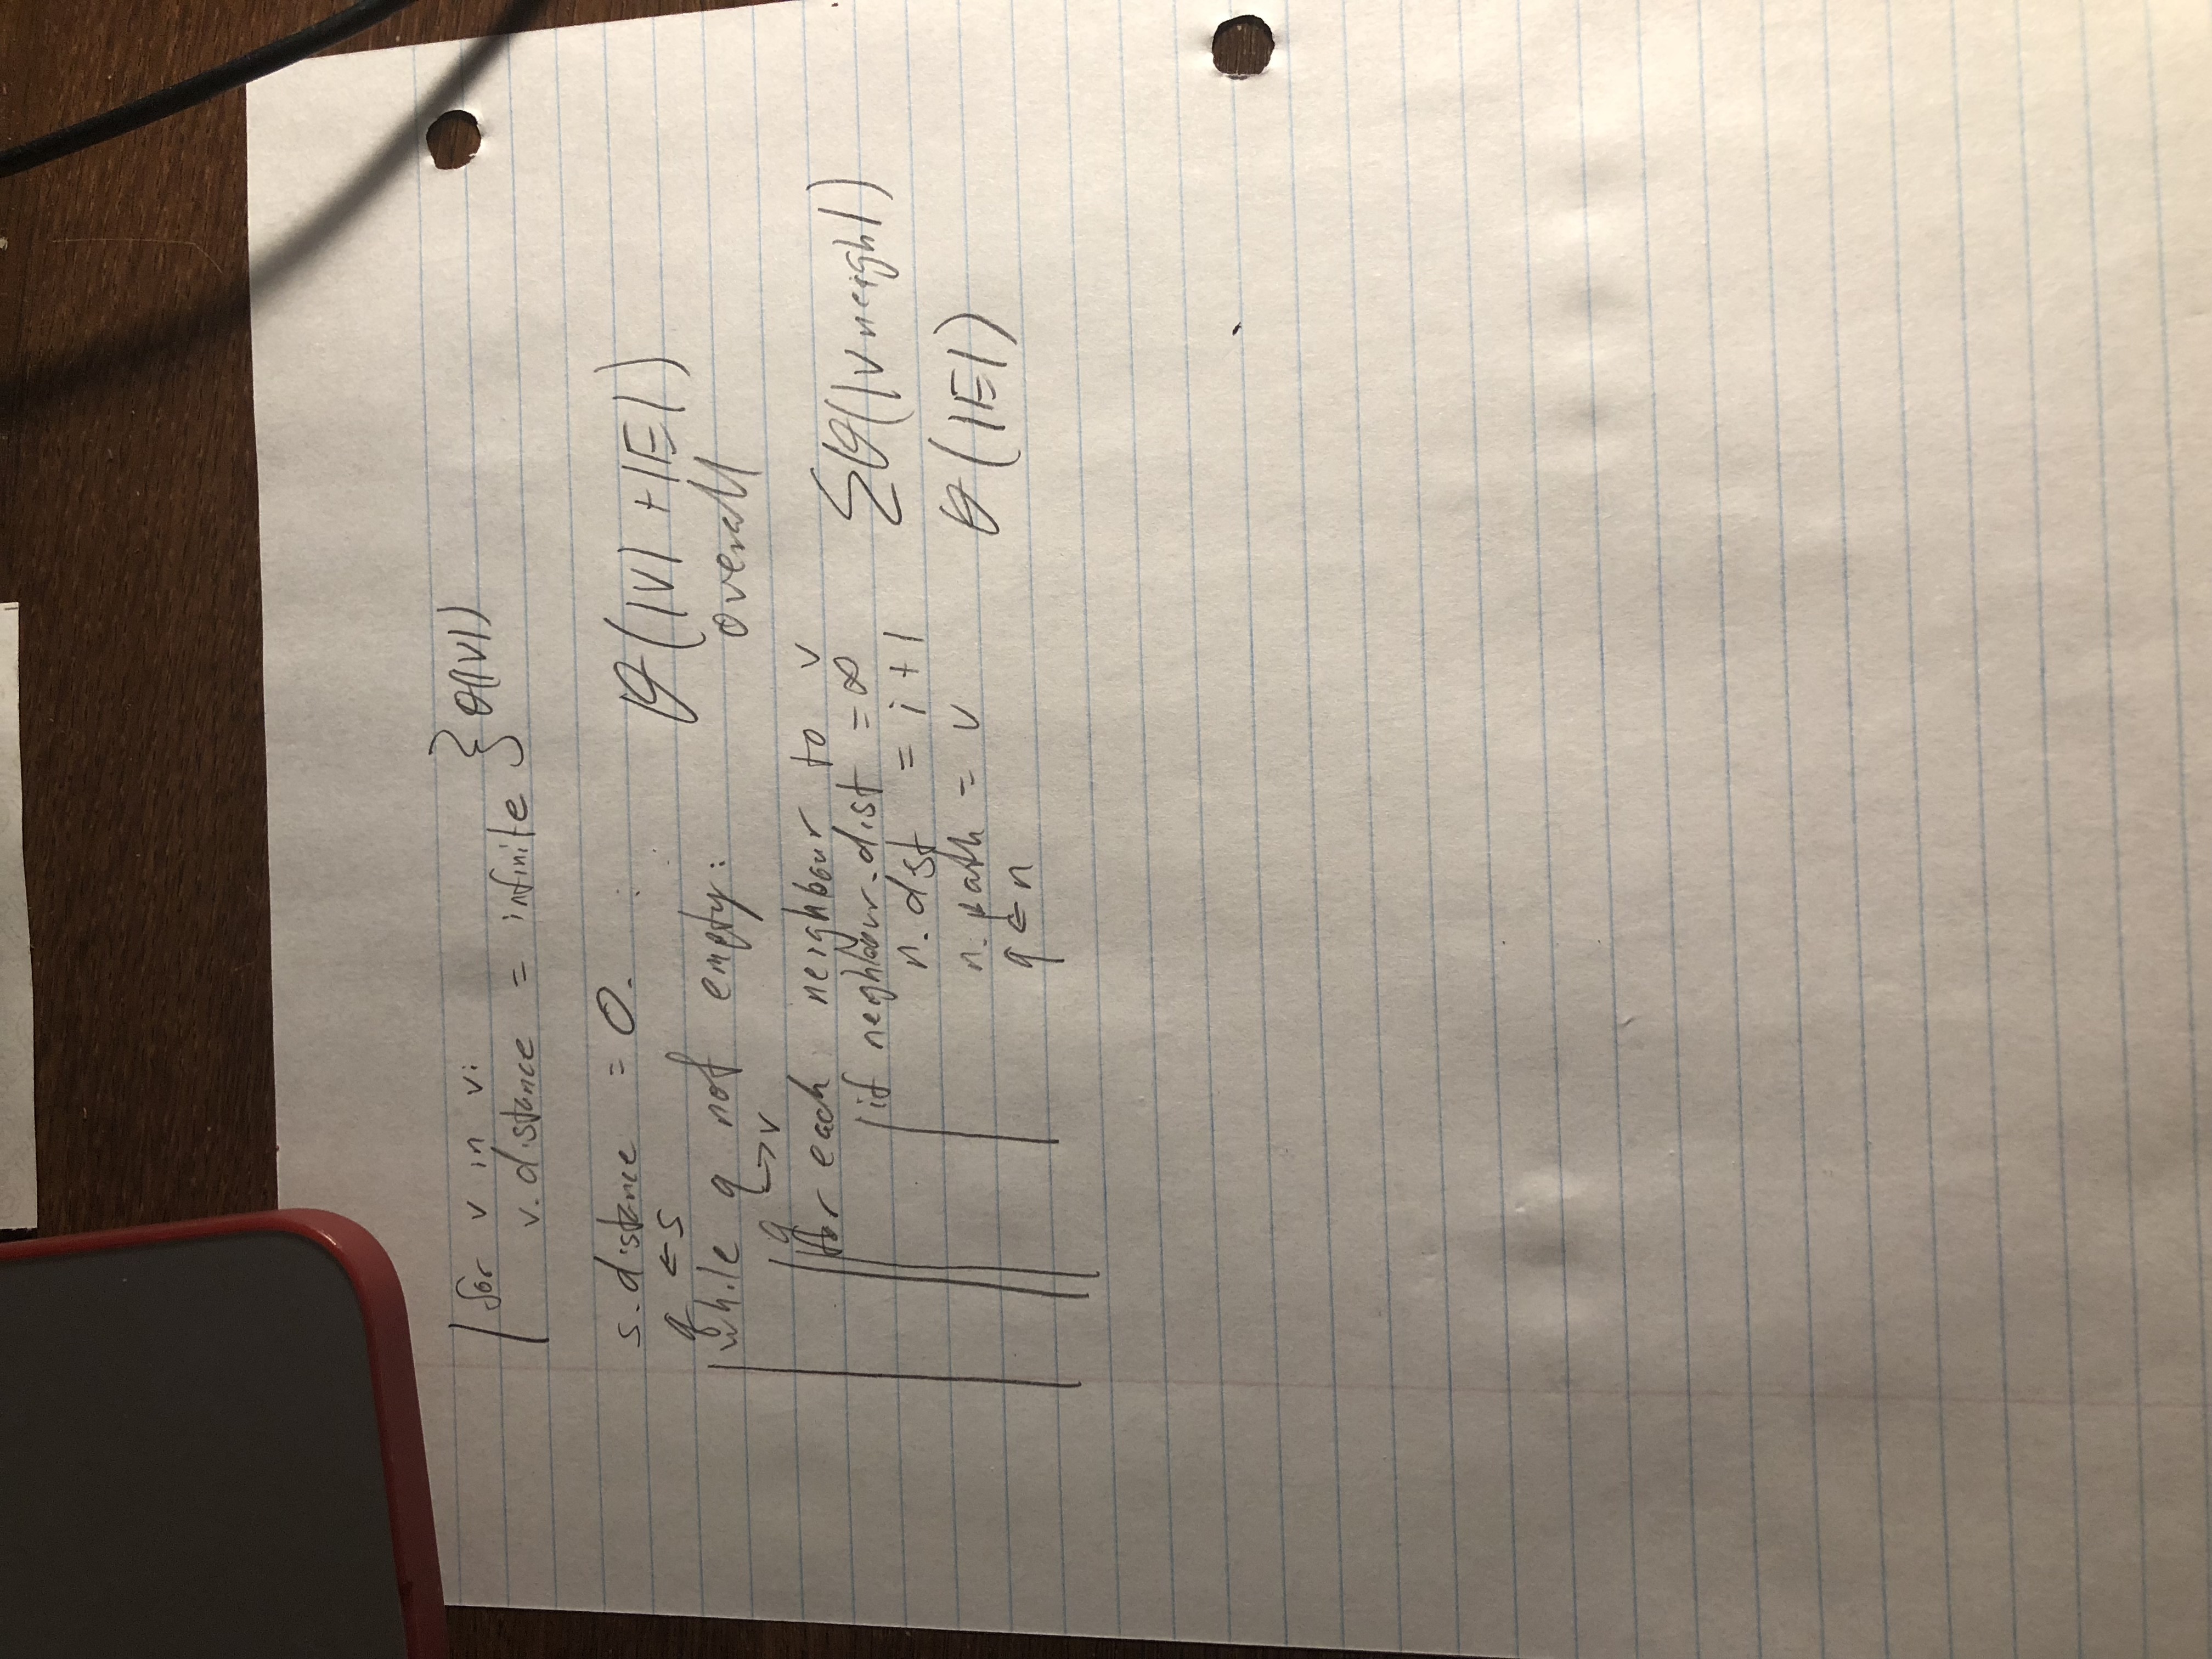 for v in v:
v.distance = infinite } θ(|V|)
s.distance = 0.
q ← s
while q not empty:
θ(|V| + |E|)
overall
q → v
for each neighbour to v
if neghbour.dist = ∞
n.dst = i + 1
n.path = v
q ← n
Σθ(|v neigh|)
θ(|E|)